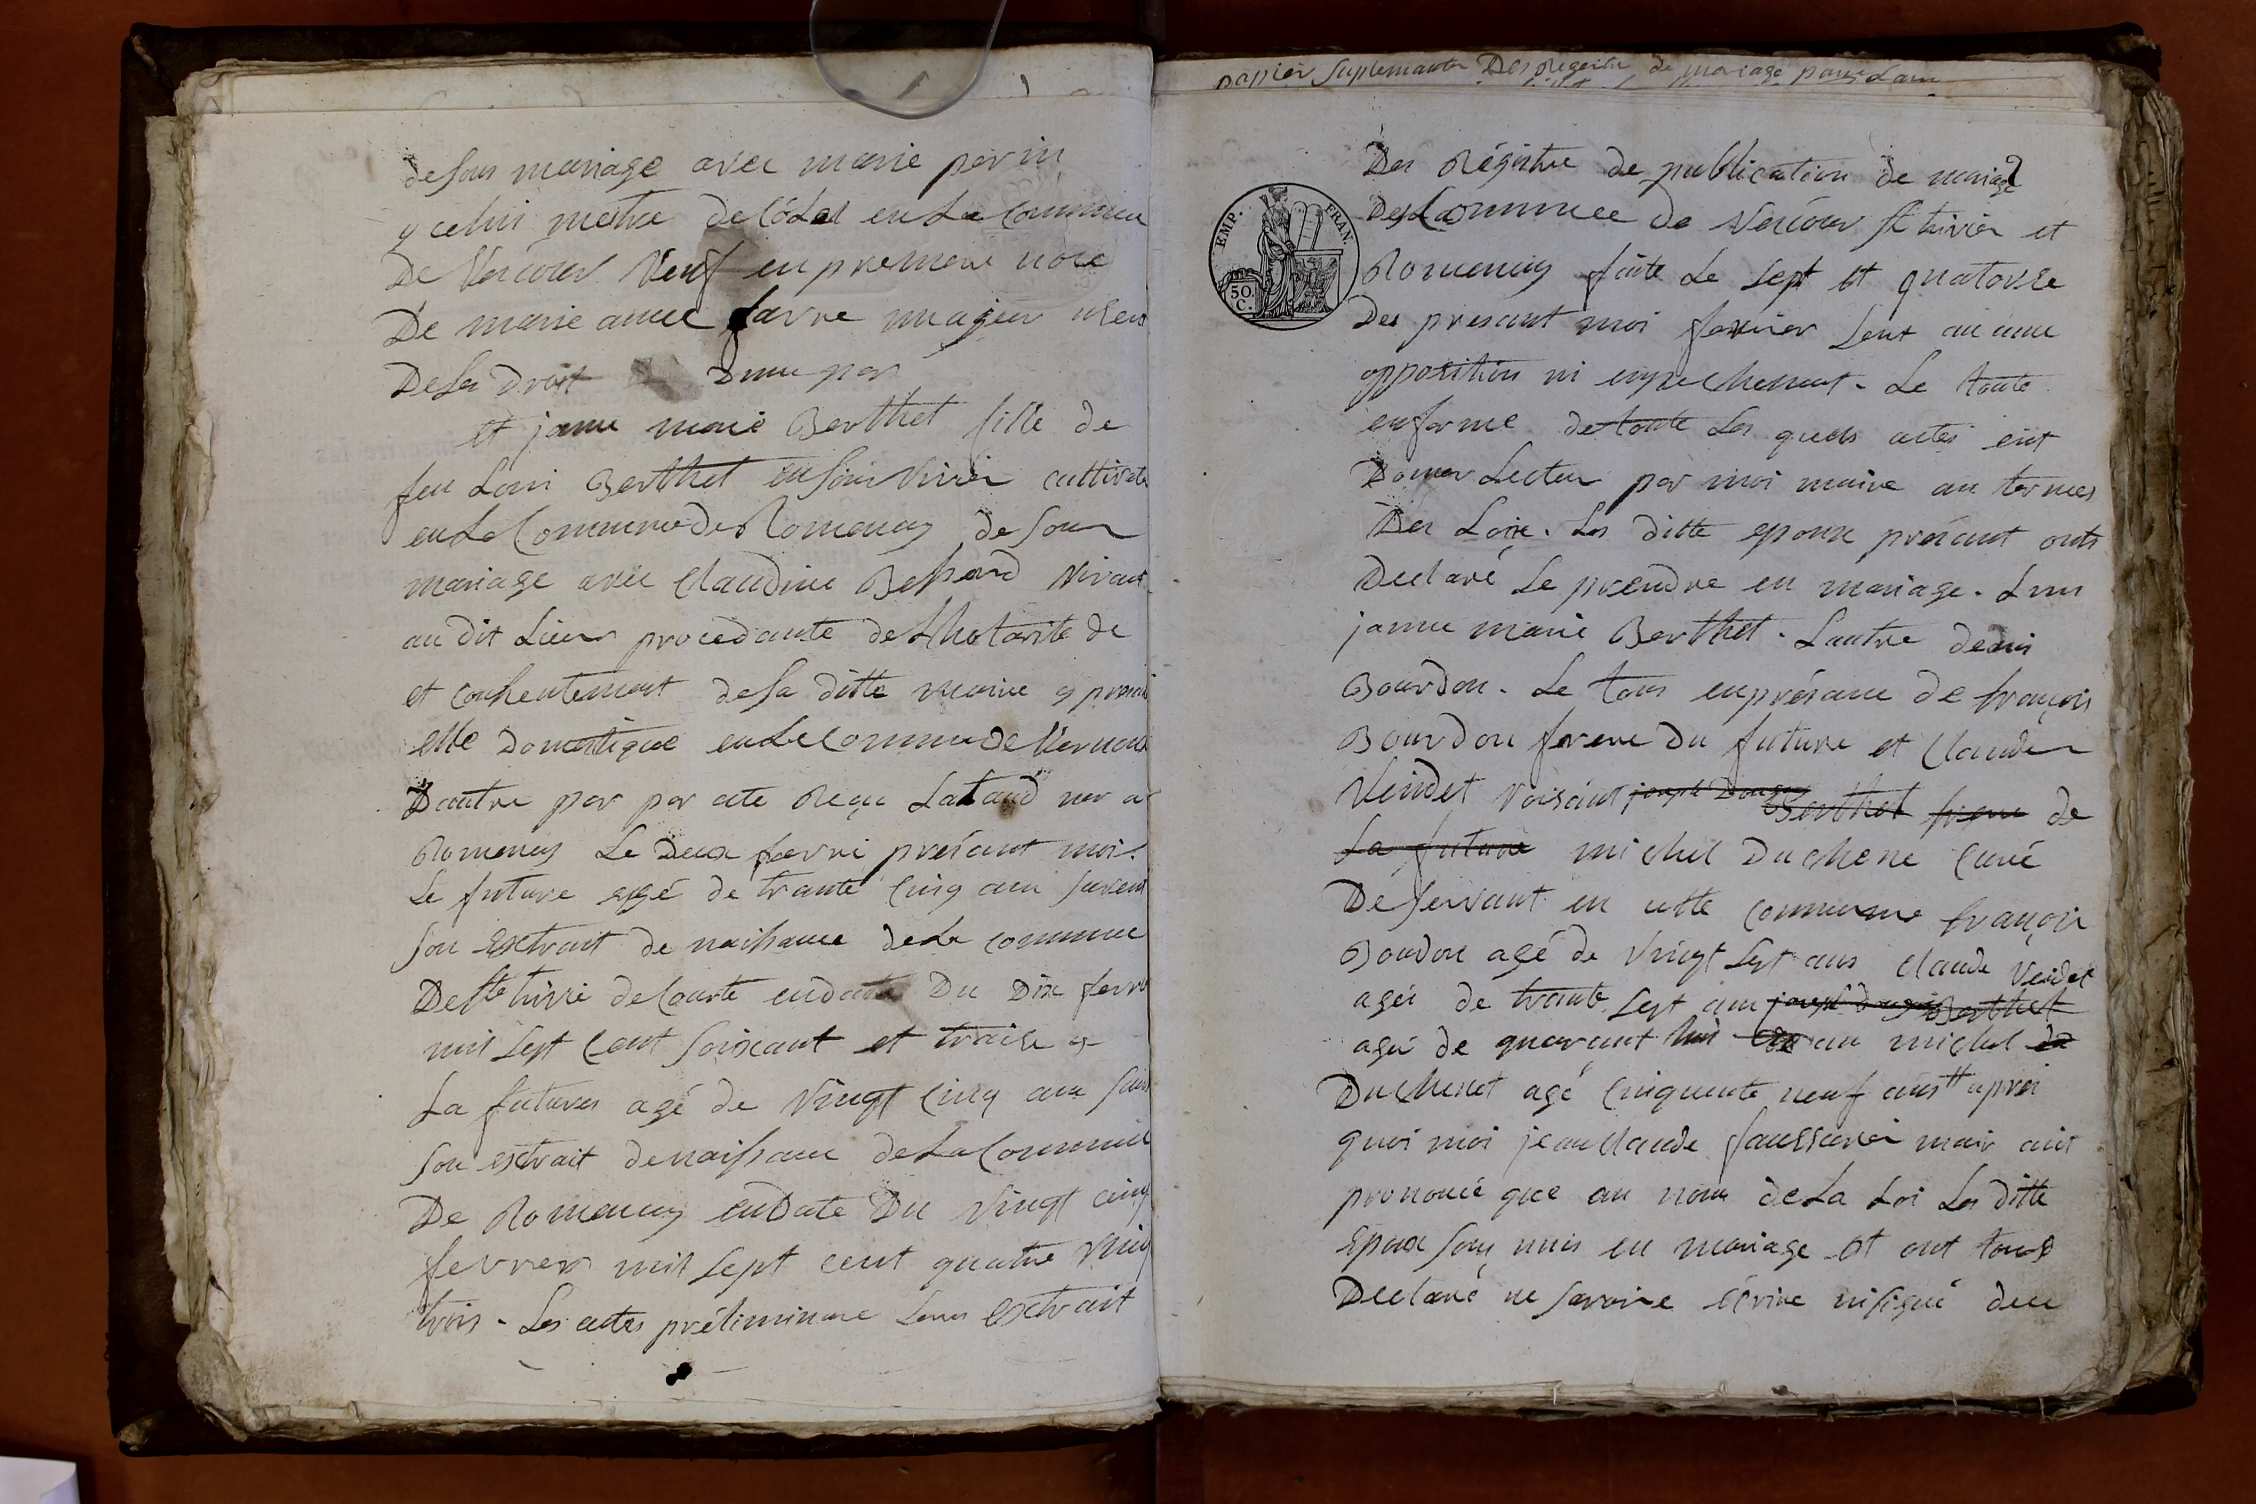 de son mariage avec marie perrin
y celui metre de Cólal en La Commune
De Vericour Veuf en premiere noce
De marie anne favre mageur usen
De Ses Droit Dune par
et janne marie Berthet fille de
feu Loui Berthet en Son vivin cultivate
en La Commune de Romenay de Son
mariage avec Claudine Besson vivant
au dit Lieux procedante de Lhotorite de
et consentement de sa ditte maire y presen
elle domestique en La Commune de Vernoux
D'autre par par acte Reçu Lataud not a
Romenay Le deux favri présant moi.
Le future agé de trante cinq an suivent
son extrait de naissance de La commune
De Ste trivié de Courte endate Du Dix fevri
mil Sept Cent soixant et traize y
La futures agé de vingt cinq ans suiv
son extrait de naissance de La Commune
De Romenay en Date Du vingt cinq
fevrier mil Sept cent quatre ving
trois - Les actes préliminare sons extrait
papier Suplemante Des Regeistre de mariage pour Lann
Des Régistre de publication de mariage
Des Commune de Vericour St trivier et
Romenay faite Le Sept et quatorze
Des presant moi fevrier sent aucune
opposition ni enpechement - Le toute
enforme de toute Les quels actes eint
Donner Lecteur par moi maire au termes
Des Loix. Les ditte epoux présant onts
Declaré Se prendre en mariage. Luns
janne marie Berthet. Lautre denis
Bourdon. Le tous enprésance de françois
Bourdon frere Du future et Claude
Veudet voisént joseph Dougey Berthet frere de
La future michel Duchene Curé
Desservant en cette commune françois
Boudon agé de vingt Sept ans Claude Veudet
agéi de trante Sept an joseph Berthet
agé de quarant hui an michel
Duchenet agé Cinquente neuf ans aprei
quoi moi jean Claude faussurier mair aiit
prononcé que au nom de La Loi Les ditte
Epoux Sony unis en mariage et ont tous
Declaré ne Savoire écrire ni signé deu
EMP. FRAN.
50 C.